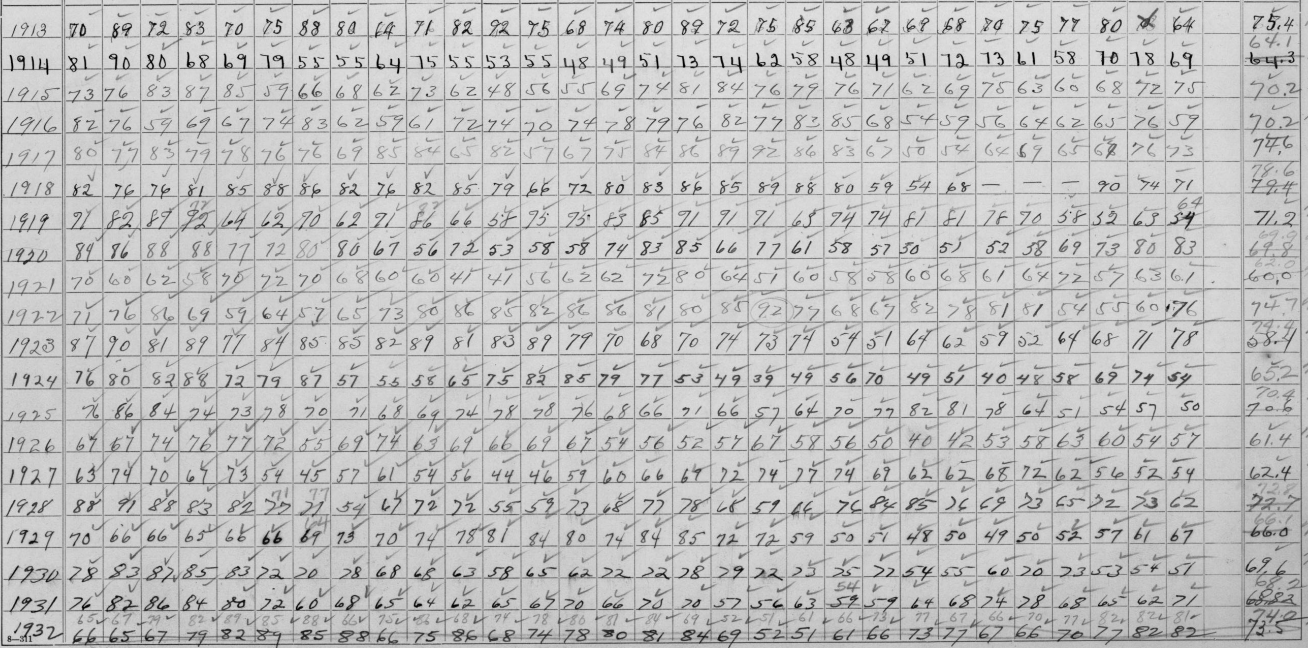 1913 70 89 72 83 70 75 88 80 64 71 82 92 75 68 74 80 89 72 75 85 68 67 69 68 70 75 77 80 64 75.4
64.1
1914 81 90 80 68 69 79 55 55 64 75 55 53 55 48 49 51 73 74 62 58 48 49 51 72 73 61 58 70 78 69 64.3
1915 73 76 83 87 85 59 66 68 62 73 62 48 56 55 69 74 81 84 76 79 76 71 62 69 75 63 60 68 72 75 70.2
1916 82 76 59 69 67 74 83 62 59 61 72 74 70 74 78 79 76 82 77 83 85 68 54 59 56 64 62 65 76 59 70.2
1917 80 77 83 79 78 76 76 69 85 84 65 82 57 67 75 84 86 89 92 86 83 67 50 54 64 69 65 76 73 74.6
78.6
1918 82 76 76 81 85 88 86 82 76 82 85 79 66 72 80 83 86 85 89 88 80 59 54 68 — — — 90 74 71 79.4
64
1919 71 82 89 92 64 62 70 62 71 86 66 58 75 75 83 85 91 91 71 63 74 74 81 81 78 70 58 52 63 54 71.2
1920 89 86 88 88 77 72 80 80 67 56 72 53 58 58 74 83 85 66 77 61 58 57 50 51 52 58 69 73 80 83 69.8
1921 70 60 62 58 70 72 70 68 60 60 41 41 56 62 62 72 80 64 51 60 58 58 60 68 61 64 72 57 63 61 60.0
1922 71 76 86 69 59 64 57 65 73 80 86 85 82 86 86 81 80 85 92 77 68 67 82 78 81 81 54 55 60 76 74.7
74.4
1923 87 90 81 89 77 84 85 85 82 89 81 83 89 79 70 68 70 74 73 74 54 51 64 62 59 52 64 68 71 78 58.4
1924 76 80 82 88 72 79 87 57 55 58 65 75 82 85 79 77 53 49 39 49 56 70 49 51 40 48 58 69 74 54 65.2
70.4
1925 76 86 84 74 73 78 70 71 68 69 74 78 78 76 68 66 71 66 57 64 70 77 82 81 78 64 51 54 57 50 70.6
1926 67 67 74 76 77 72 55 69 74 63 69 66 69 67 54 56 52 57 67 58 56 50 40 42 53 58 63 60 54 57 61.4
1927 63 74 70 67 73 54 45 57 61 54 56 44 46 59 60 66 69 72 74 77 74 69 62 62 68 72 62 56 52 54 62.4
71 77 72.8
1928 88 91 88 83 82 77 77 54 67 72 72 55 59 73 68 77 78 68 59 66 76 84 85 76 69 73 65 72 73 62 72.7
64 66.1
1929 70 66 66 65 66 66 69 73 70 74 78 81 84 80 74 84 85 72 72 59 50 51 48 50 49 50 52 57 61 67 66.0
1930 78 83 87 85 83 72 70 78 68 68 63 58 65 62 72 72 78 79 72 73 75 77 54 55 60 70 73 53 54 51 69.6
54 68.2
1931 76 82 86 84 80 72 60 68 65 64 62 65 67 70 66 70 70 57 56 63 59 59 64 68 74 78 68 65 62 71 68.83
65 67 79 82 89 85 88 66 75 86 68 74 78 80 81 84 69 52 51 61 66 73 77 67 66 70 77 82 82 81 74.0
1932 66 65 67 79 82 89 85 88 66 75 86 68 74 78 80 81 84 69 52 51 61 66 73 77 67 66 70 77 82 82 73.5
8—311